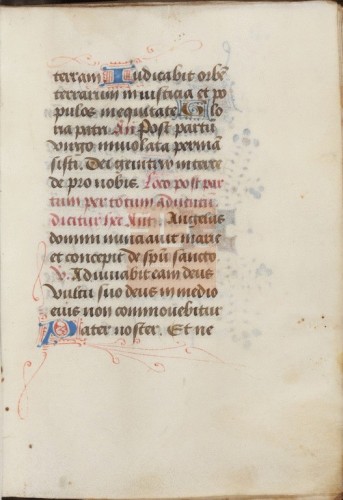 terram Iudicabit orbē
terrarum in iusticia et po
pulos in equitate Glo
ria patri An̄ Post partū
virgo inuiolata perman̄
sisti. Dei genitrix interce
de pro nobis. Loco post par
tum per totum aduentū
dicitur hec Ant̄ Angelus
domini nunciauit marie
et concepit de spū sancto
V. Adiuuabit eam deus
vultu suo deus in medio
eius non commouebitur
Pater noster. Et ne